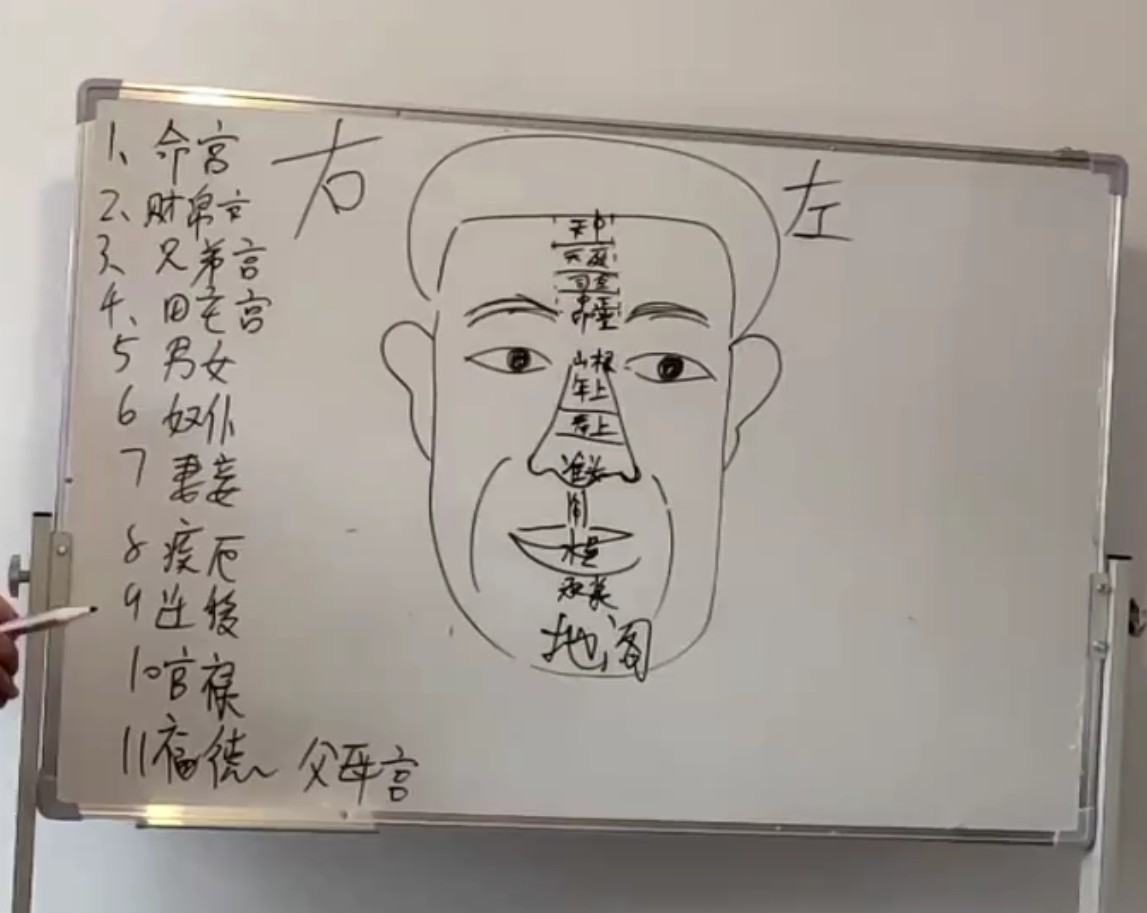 1、命宫
2、财帛宫
3、兄弟宫
4、田宅宫
5 男女
6 奴仆
7 妻妾
8 疾厄
9 迁移
10官禄
11福德
父母宫
右
左
天中
天庭
司空
中正
印堂
山根
年上
寿上
准头
水星
承浆
地阁